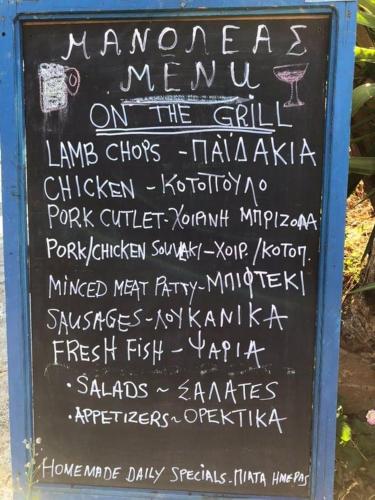 ΜΑΝΟΛΕΑΣ
MENU
ON THE GRILL
LAMB CHOPS - ΠΑΪΔΑΚΙΑ
CHICKEN - ΚΟΤΟΠΟΥΛΟ
PORK CUTLET - ΧΟΙΡΙΝΗ ΜΠΡΙΖΟΛΑ
PORK/CHICKEN SOUVLAKI - ΧΟΙΡ./ΚΟΤΟΠ.
MINCED MEAT PATTY - ΜΠΙΦΤΕΚΙ
SAUSAGES - ΛΟΥΚΑΝΙΚΑ
FRESH FISH - ΨΑΡΙΑ
• SALADS ~ ΣΑΛΑΤΕΣ
• APPETIZERS ~ ΟΡΕΚΤΙΚΑ
HOMEMADE DAILY SPECIALS. ΠΙΑΤΑ ΗΜΕΡΑΣ